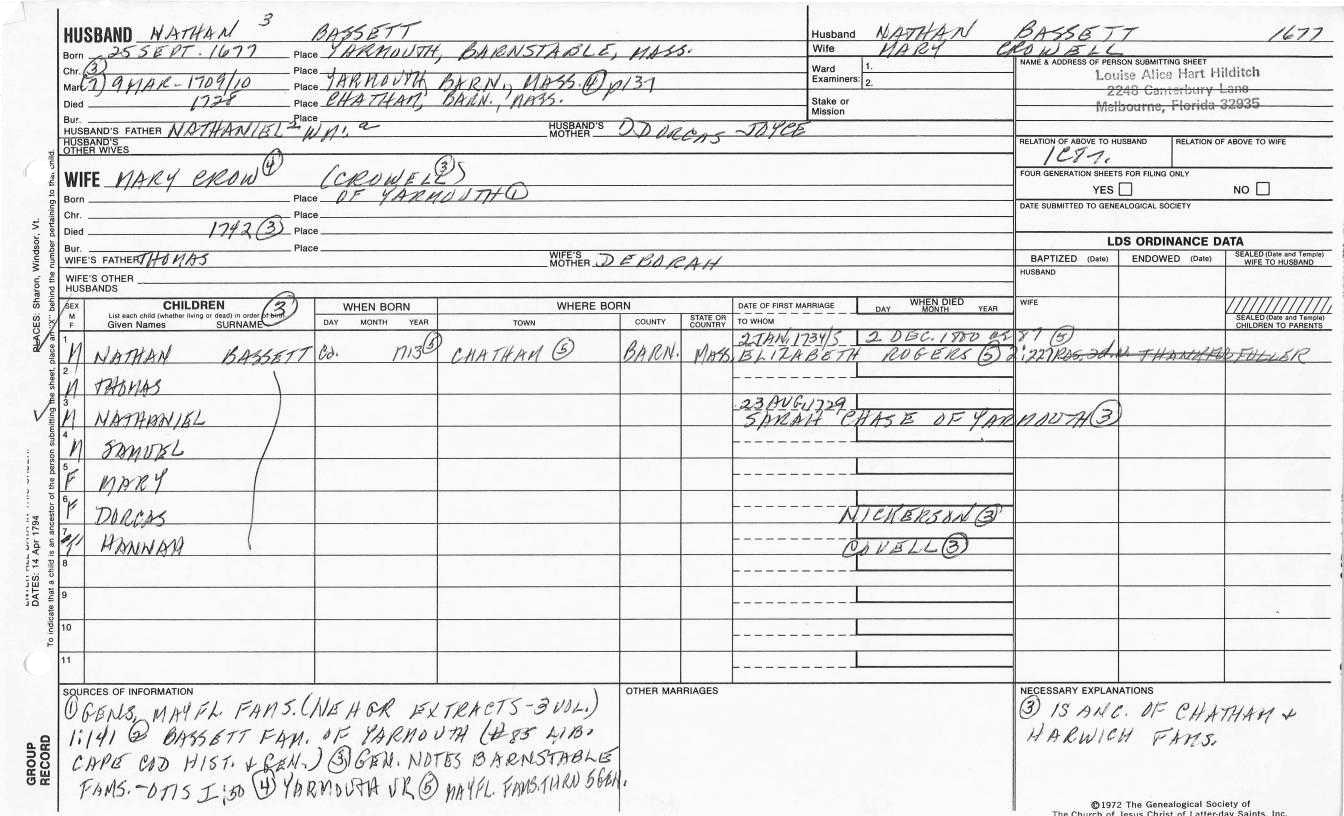 HUSBAND NATHAN 3 BASSETT
Born 25 SEPT. 1677 Place YARMOUTH, BARNSTABLE, MASS.
Chr. ③ Place
Marr. ⑦ 9 MAR - 1709/10 Place YARMOUTH, BARN, MASS. ④ p137
Died 1728 Place CHATHAM, BARN., MASS.
Bur. Place
HUSBAND'S FATHER NATHANIEL 2 Wm. HUSBAND'S MOTHER DORCAS JOYCE
HUSBAND'S OTHER WIVES
Husband NATHAN BASSETT 1677
Wife MARY CROWELL
Ward Examiners: 1.
2.
Stake or Mission
NAME & ADDRESS OF PERSON SUBMITTING SHEET
Louise Alice Hart Hilditch
2248 Canterbury Lane
Melbourne, Florida 32935
RELATION OF ABOVE TO HUSBAND
RELATION OF ABOVE TO WIFE
FOUR GENERATION SHEETS FOR FILING ONLY
YES NO
DATE SUBMITTED TO GENEALOGICAL SOCIETY
WIFE MARY CROW ④ (CROWELL ③)
Born Place OF YARMOUTH ①
Chr. Place
Died 1742 ③ Place
Bur. Place
WIFE'S FATHER THOMAS WIFE'S MOTHER DEBORAH
WIFE'S OTHER HUSBANDS
LDS ORDINANCE DATA
BAPTIZED (Date) ENDOWED (Date) SEALED (Date and Temple) WIFE TO HUSBAND
HUSBAND
WIFE
SEALED (Date and Temple) CHILDREN TO PARENTS
SEX M F
CHILDREN ③
List each child (whether living or dead) in order of birth
Given Names SURNAME
WHEN BORN
DAY MONTH YEAR
WHERE BORN
TOWN COUNTY STATE OR COUNTRY
DATE OF FIRST MARRIAGE
TO WHOM
WHEN DIED
DAY MONTH YEAR
2 JAN. 1734/5 2 DEC. 1800 ae 87 ⑤
1 M NATHAN BASSETT Ca. 1713 ⑤ CHATHAM ⑤ BARN. MASS. ELIZABETH ROGERS ⑤ 2:227 THANKFUL FULLER
2 M THOMAS
23 AUG. 1729
3 M NATHANIEL SARAH CHASE OF YARMOUTH ③
4 M SAMUEL
5 F MARY
6 F DORCAS NICKERSON ③
7 F HANNAH COVELL ③
8
9
10
11
SOURCES OF INFORMATION
① GENS. MAYFL FAMS. (NEHGR EXTRACTS - 3 VOL.)
1:141 ② BASSETT FAM. OF YARMOUTH (#85 LIB.
CAPE COD HIST. & GEN.) ③ GEN. NOTES BARNSTABLE
FAMS. - OTIS I:50 ④ YARMOUTH VR ⑤ MAYFL. FAMS. THRU 5 GEN.
OTHER MARRIAGES
NECESSARY EXPLANATIONS
③ IS ANC. OF CHATHAM &
HARWICH FAMS.
©1972 The Genealogical Society of
The Church of Jesus Christ of Latter-day Saints, Inc.
PLACES: Sharon, Windsor, Vt.
DATES: 14 Apr 1794
To indicate that a child is an ancestor of the person submitting the sheet, place an "X" behind the number pertaining to that child.
GROUP
RECORD